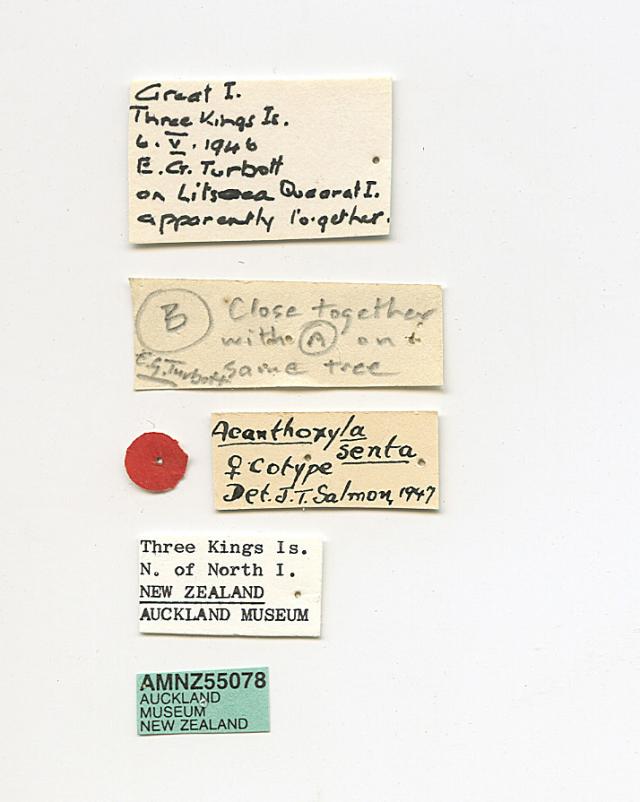 Great I.
Three Kings Is.
6. V. 1946
E. G. Turbott
on Litsaea Quadrat I.
apparently together.
B Close together
with A on
E.G. Turbott. same tree
Acanthoxyla
senta
♀ Cotype
Det. J.T. Salmon, 1947
Three Kings Is.
N. of North I.
NEW ZEALAND
AUCKLAND MUSEUM
AMNZ55078
AUCKLAND
MUSEUM
NEW ZEALAND